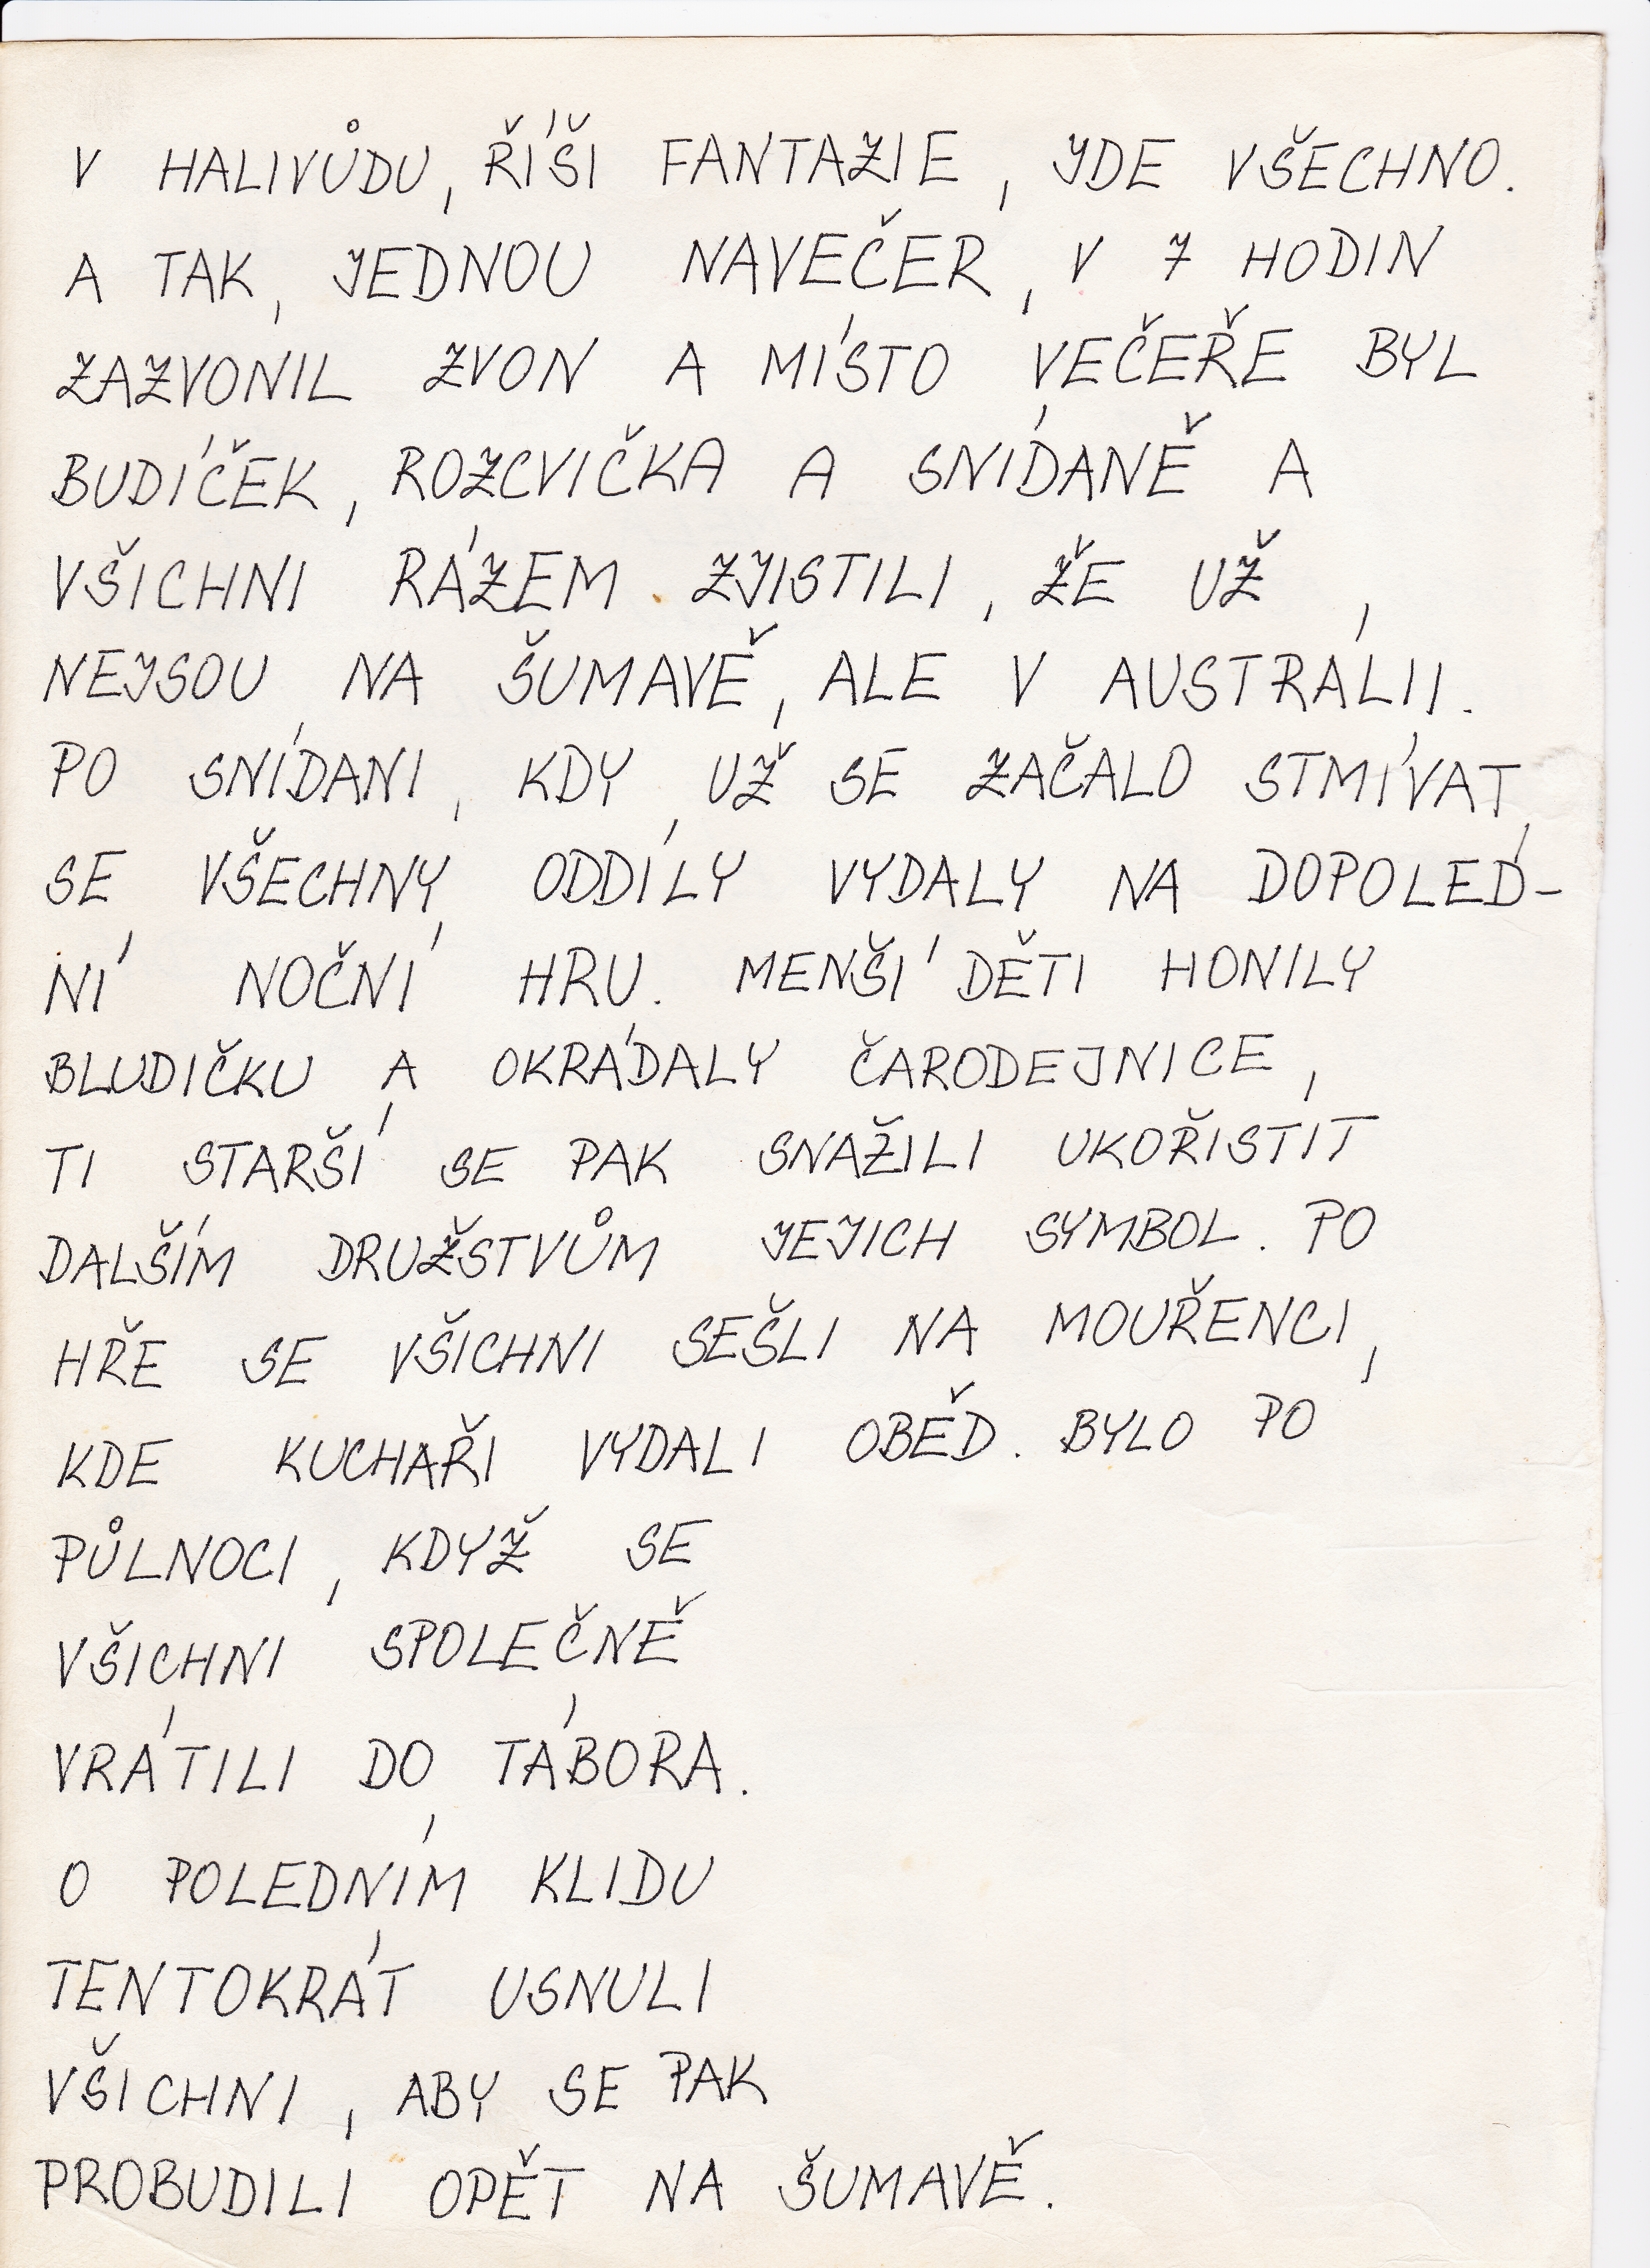 V HALIVŮDU, ŘÍŠI FANTAZIE, JDE VŠECHNO.
A TAK, JEDNOU NAVEČER, V 7 HODIN
ZAZVONIL ZVON A MÍSTO VEČEŘE BYL
BUDÍČEK, ROZCVIČKA A SNÍDANĚ A
VŠICHNI RÁZEM ZJISTILI, ŽE UŽ
NEJSOU NA ŠUMAVĚ, ALE V AUSTRÁLII.
PO SNÍDANI, KDY UŽ SE ZAČALO STMÍVAT,
SE VŠECHNY ODDÍLY VYDALY NA DOPOLED-
NÍ NOČNÍ HRU. MENŠÍ DĚTI HONILY
BLUDIČKU A OKRÁDALY ČARODEJNICE,
TI STARŠÍ SE PAK SNAŽILI UKOŘISTIT
DALŠÍM DRUŽSTVŮM JEJICH SYMBOL. PO
HŘE SE VŠICHNI SEŠLI NA MOUŘENCI,
KDE KUCHAŘI VYDALI OBĚD. BYLO PO
PŮLNOCI, KDYŽ SE
VŠICHNI SPOLEČNĚ
VRÁTILI DO TÁBORA.
O POLEDNÍM KLIDU
TENTOKRÁT USNULI
VŠICHNI, ABY SE PAK
PROBUDILI OPĚT NA ŠUMAVĚ.